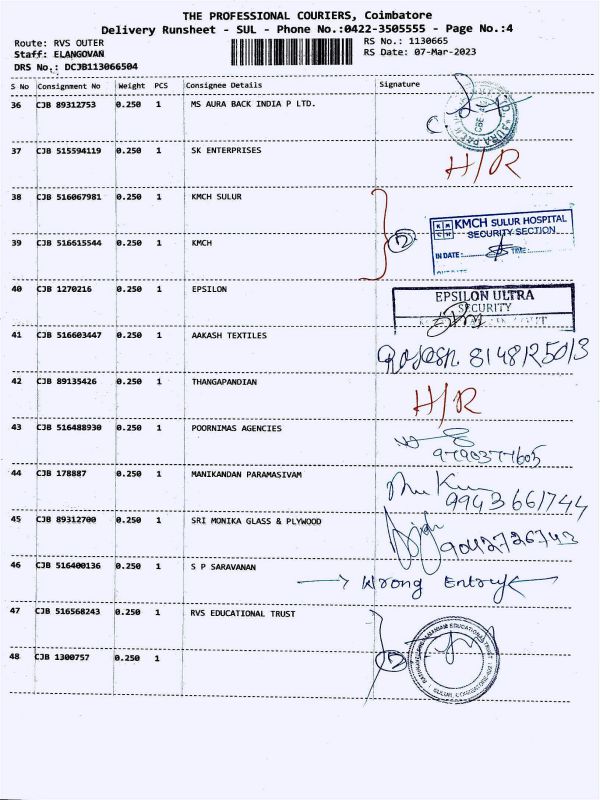 THE PROFESSIONAL COURIERS, Coimbatore
Delivery Runsheet - SUL - Phone No.:0422-3505555 - Page No.:4
Route: RVS OUTER
Staff: ELANGOVAN
DRS No.: DCJB113066504
RS No.: 1130665
RS Date: 07-Mar-2023
S No Consignment No Weight PCS Consignee Details Signature
36 CJB 89312753 0.250 1 MS AURA BACK INDIA P LTD.
37 CJB 515594119 0.250 1 SK ENTERPRISES H/R
38 CJB 516067981 0.250 1 KMCH SULUR
KMCH SULUR HOSPITAL
SECURITY SECTION
IN DATE: TIME:
39 CJB 516615544 0.250 1 KMCH
40 CJB 1270216 0.250 1 EPSILON
EPSILON ULTRA
SECURITY
41 CJB 516603447 0.250 1 AAKASH TEXTILES
8148125013
42 CJB 89135426 0.250 1 THANGAPANDIAN H/R
43 CJB 516488930 0.250 1 POORNIMAS AGENCIES
9790377605
44 CJB 178887 0.250 1 MANIKANDAN PARAMASIVAM
9943661744
45 CJB 89312700 0.250 1 SRI MONIKA GLASS & PLYWOOD
9042726743
46 CJB 516400136 0.250 1 S P SARAVANAN
Wrong Entry
47 CJB 516568243 0.250 1 RVS EDUCATIONAL TRUST
48 CJB 1300757 0.250 1
EDUCATIONAL TRUST